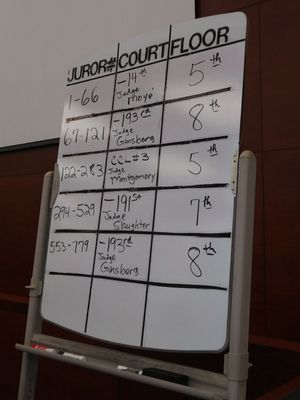 JUROR# COURT FLOOR
1-66 -14th Judge Moyé 5th
67-121 -193rd Judge Ginsberg 8th
122-283 CCL#3 Judge Montgomery 5th
294-529 -191st Judge Slaughter 7th
553-779 -193rd Judge Ginsberg 8th